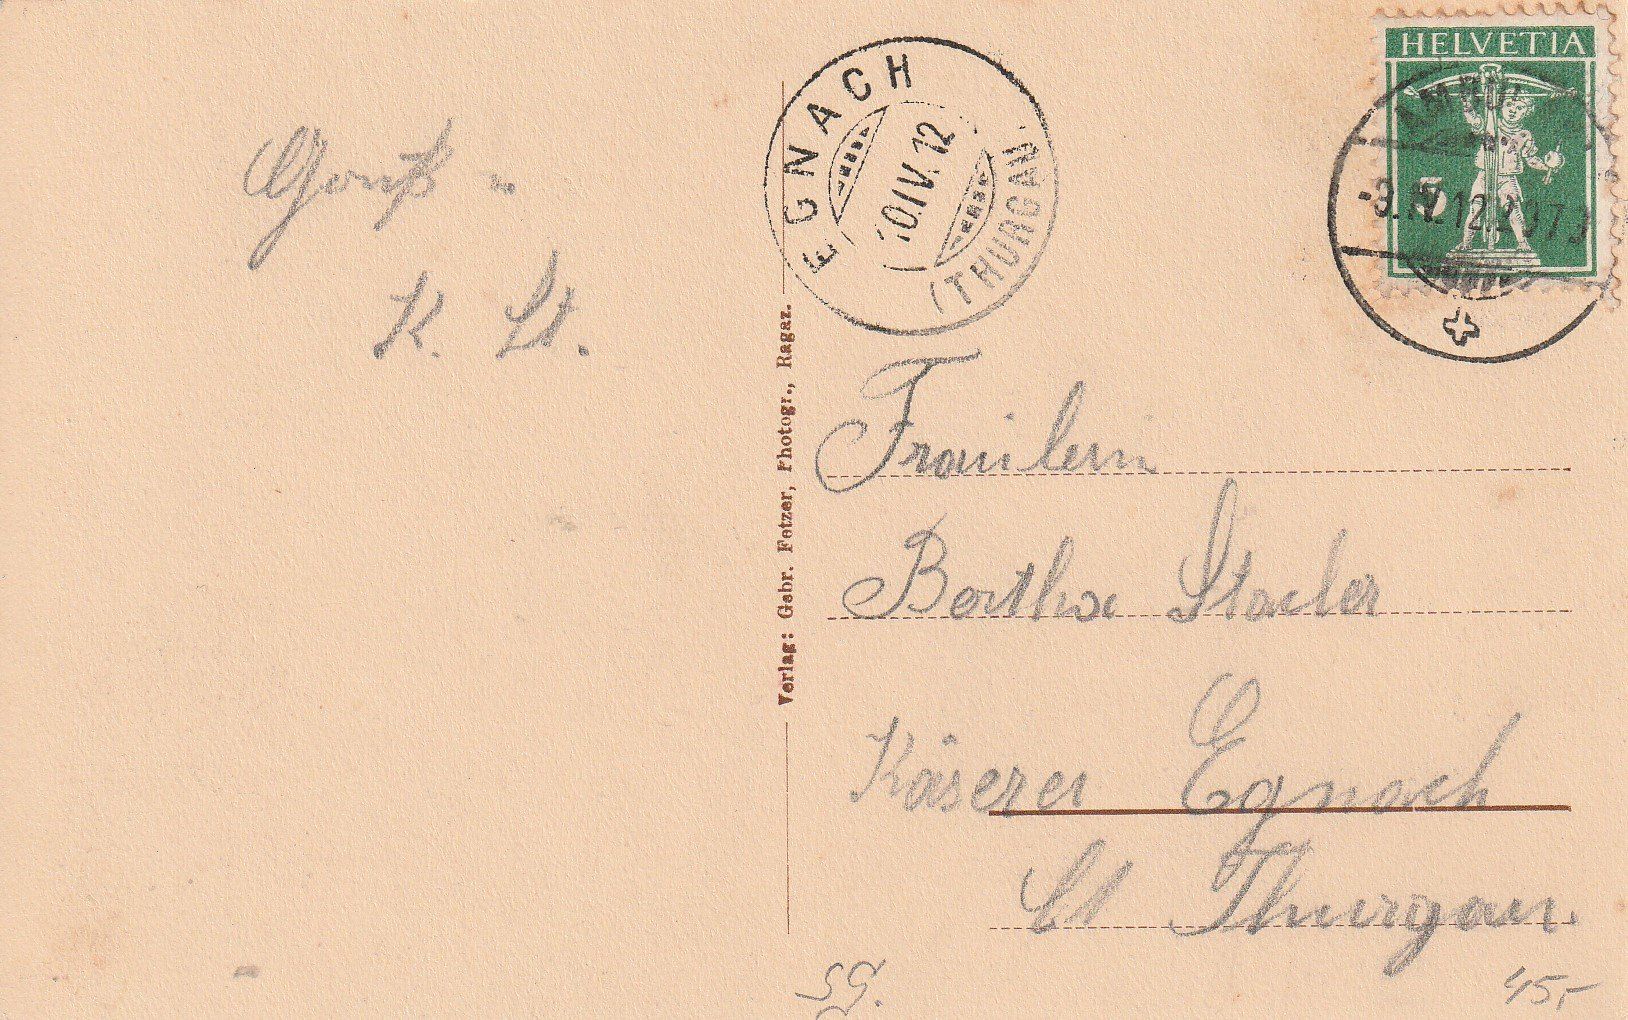 Gruß
K. St.
EGNACH
10.IV.12
(THURGAU)
HELVETIA
5
Verlag: Gebr. Fetzer, Photogr., Ragaz.
Fräulein
Bertha
Käserei Egnach
Ct Thurgau.
SG.
45,-